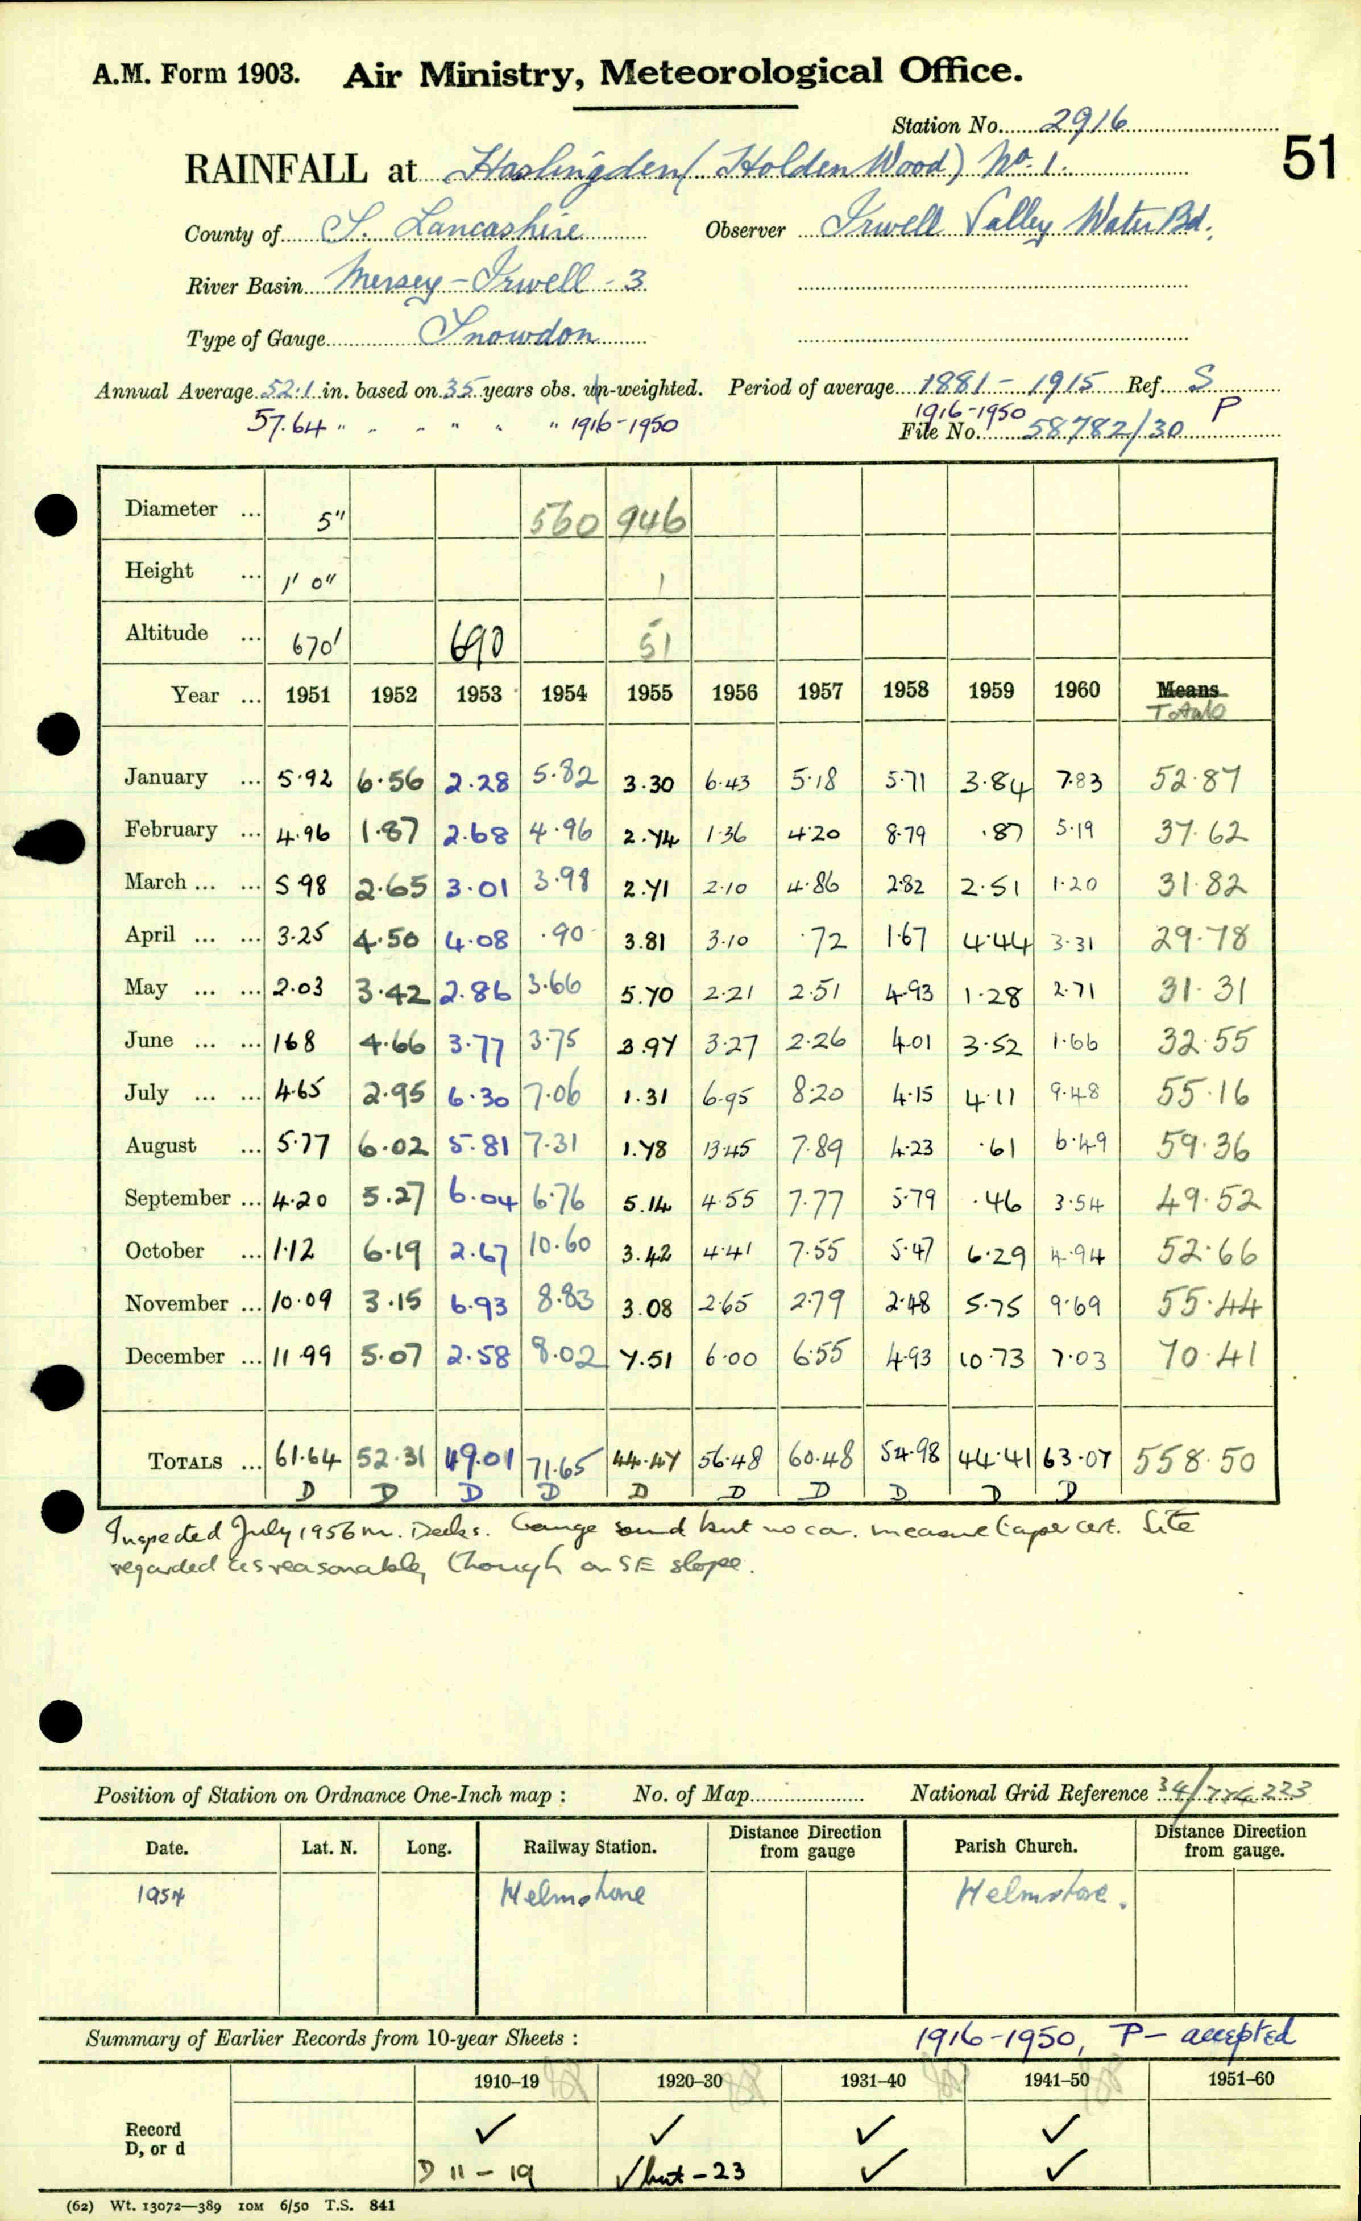 A.M. Form 1903. Air Ministry, Meteorological Office.
Station No. 2916
51
RAINFALL at Haslingden (Holden Wood) No. 1.
County of S. Lancashire Observer Irwell Valley Water Bd.
River Basin Mersey - Irwell - 3
Type of Gauge Snowdon
Annual Average 52.1 in. based on 35 years obs. un-weighted. Period of average 1881 - 1915 Ref. S
57.64 " " " " " " 1916-1950 1916-1950 P
File No. 58782/30
Diameter ... 5" 560 946
Height ... 1' 0" 1
Altitude ... 670' 690 51
Year ... 1951 1952 1953 1954 1955 1956 1957 1958 1959 1960 Means
Totals
January ... 5.92 6.56 2.28 5.82 3.30 6.43 5.18 5.71 3.84 7.83 52.87
February ... 4.96 1.87 2.68 4.96 2.74 1.36 4.20 8.79 .87 5.19 37.62
March ... ... 5.98 2.65 3.01 3.98 2.71 2.10 4.86 2.82 2.51 1.20 31.82
April ... ... 3.25 4.50 4.08 .90 3.81 3.10 .72 1.67 4.44 3.31 29.78
May ... ... 2.03 3.42 2.86 3.66 5.70 2.21 2.51 4.93 1.28 2.71 31.31
June ... ... 1.68 4.66 3.77 3.75 3.97 3.27 2.26 4.01 3.52 1.66 32.55
July ... ... 4.65 2.95 6.30 7.06 1.31 6.95 8.20 4.15 4.11 9.48 55.16
August ... 5.77 6.02 5.81 7.31 1.78 13.45 7.89 4.23 .61 6.49 59.36
September ... 4.20 5.27 6.04 6.76 5.14 4.55 7.77 5.79 .46 3.54 49.52
October ... 1.12 6.19 2.67 10.60 3.42 4.41 7.55 5.47 6.29 4.94 52.66
November ... 10.09 3.15 6.93 8.83 3.08 2.65 2.79 2.48 5.75 9.69 55.44
December ... 11.99 5.07 2.58 8.02 7.51 6.00 6.55 4.93 10.73 7.03 70.41
TOTALS ... 61.64 52.31 49.01 71.65 44.47 56.48 60.48 54.98 44.41 63.07 558.50
D D D D D D D D D D
Inspected July 1956 Gauge sound but no measure Site
regarded as reasonable, though on SE slope.
Position of Station on Ordnance One-Inch map : No. of Map National Grid Reference 34/ 223
Date. Lat. N. Long. Railway Station. Distance Direction from gauge Parish Church. Distance Direction from gauge.
1954 Helmshore Helmshore.
Summary of Earlier Records from 10-year Sheets : 1916-1950, P - accepted
1910-19 1920-30 1931-40 1941-50 1951-60
Record ✓ ✓ ✓ ✓
D, or d D 11 - 19 ✓ but - 23 ✓ ✓
(62) Wt. 13072—389 10M 6/50 T.S. 841